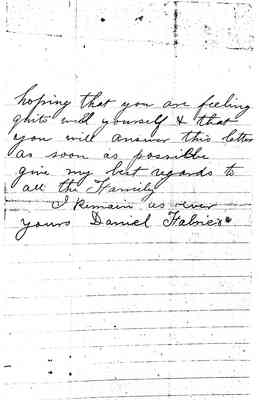 hoping that you are feeling
quite well yourself & that
you will answer this letter
as soon as possible
give my best regards to
all the Family
I Remain as ever
yours Daniel